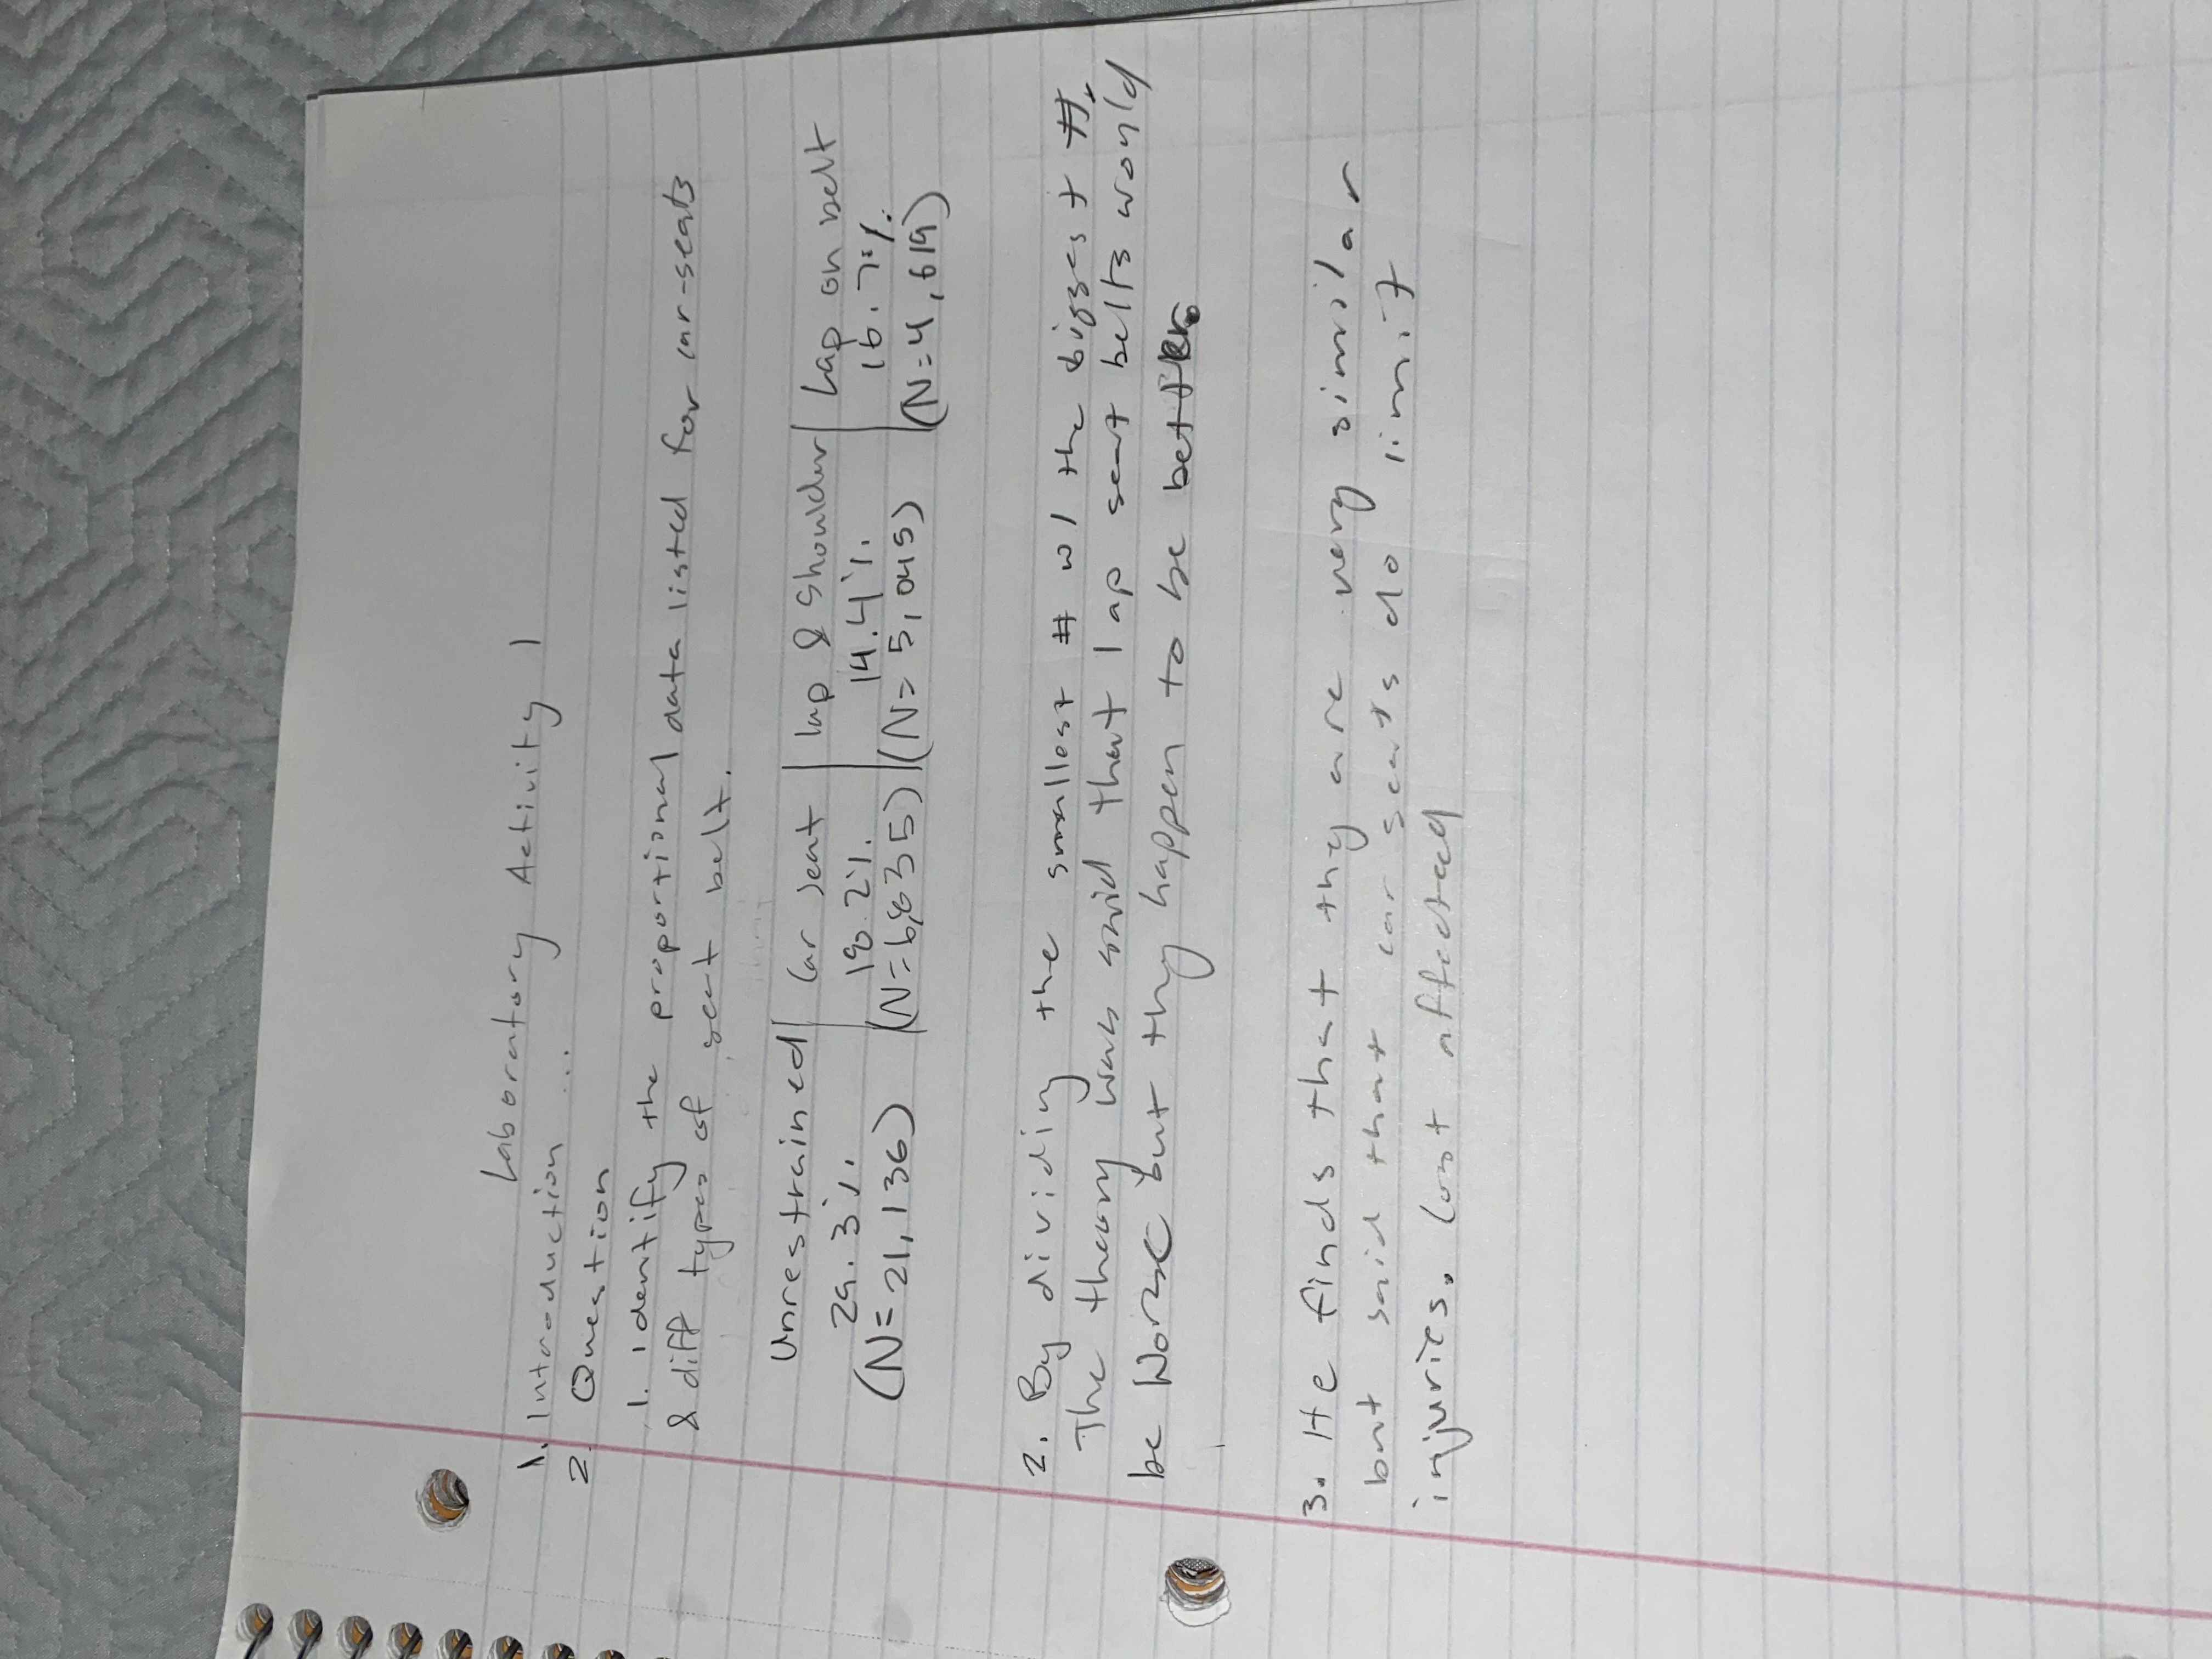 Laboratory Activity 1
1. Introduction ...
2. Question
1. identify the proportional data listed for car-seats
& diff types of seat belt.
Unrestrained | Car seat | lap & Shoulder | Lap on belt
29.3% 18.2% 14.4% 16.7%
(N=21,136) (N=6,835) (N=5,045) (N=4,619)
2. By dividing the smallest # w/ the biggest #,
The theory was said that lap seat belts would
be Worse but thy happen to be better.
3. He finds that thy are very similar
but said that car seats do limit
injuries. Cost affected